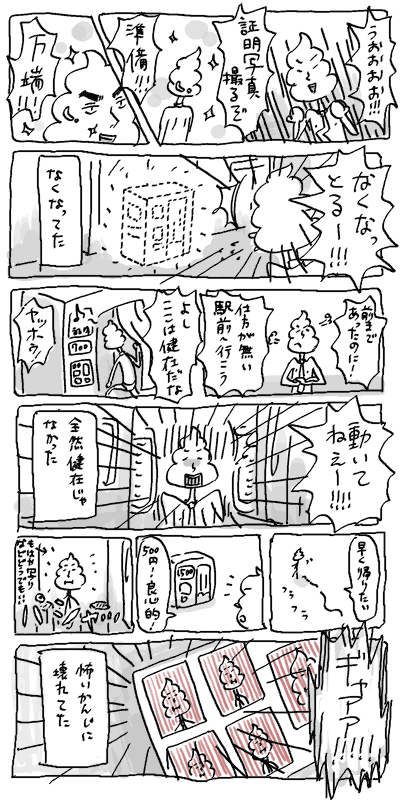 うぉおおお!!!
証明写真
撮るぞ
準備!!!
万端!!
なくなっ
とるー!!!
なくなってた
前まで
あったのに!
仕方が無い
駅前へ行こう
よし
ここは健在だな
700
ヤッホウ!
動いて
ねえー!!!!
全然健在じゃ
なかった
早く帰りたい
フラフラ
¥500
500円!良心的
もはや写り
などどうでもいい
ギャアア!!!!!
怖いかんじに
壊れてた